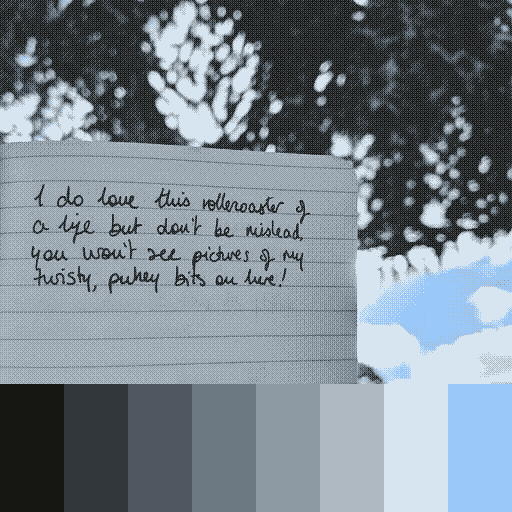 I do love this rollercoaster of
a life but don't be mislead,
you won't see pictures of my
twisty, pukey bits on here!